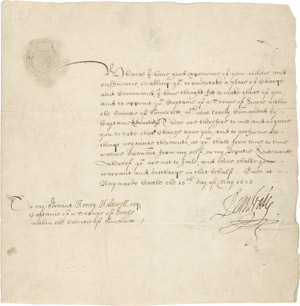 Whereas I have good experience of your abilitie and
sufficiencie, enabling you to undertake a place of Charge
and Commaund, I have thought fitt to make choice of you,
and to appoint you Captaine of a Troope of horse within
the Countie of Somersett, late commaunded by
Captaine These are therefore to will and require
you to take that Charge upon you, and to performe all
things requisite thereunto as you shall from time to time
receive from my self, or my Deputie Lieutenants
Whereof you are not to faile, and these shalbe your
warrant and discharge in that behalf. Given at
Castle the 16th day of May 1625
To my servant Henry Esq
Captaine of a Troope of horse
within the Countie of Somersett
Pembroke